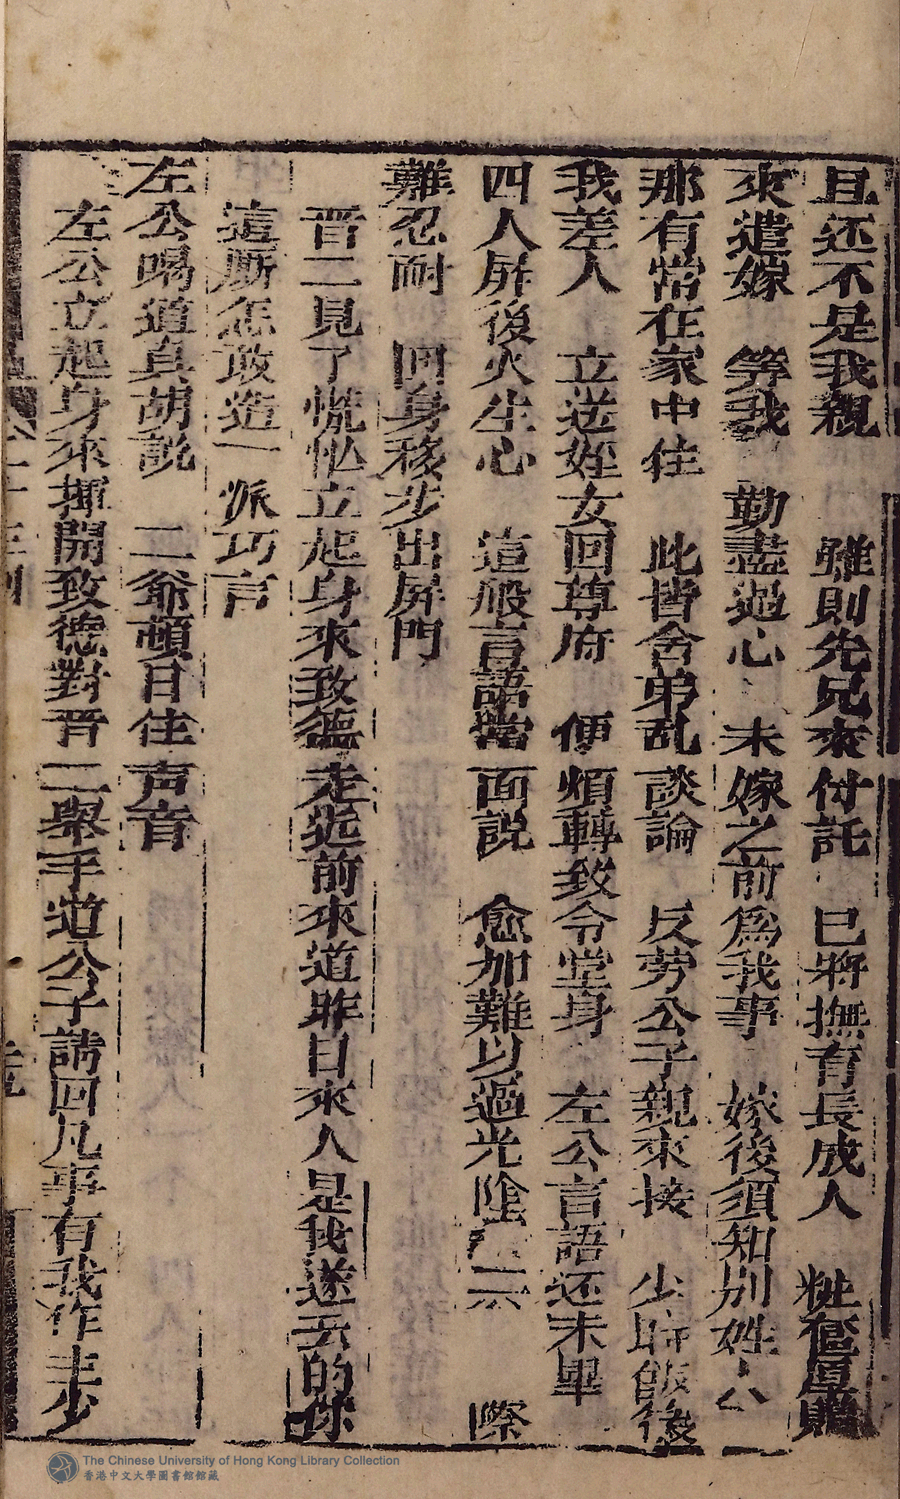 且还不是我親 雖則先兄來付託 已將撫育長成人 粧奩厚贈
來遣嫁 等我 勤盡過心 未嫁之前為我事 嫁後須知別姓人
那有常在家中住 此皆舍弟乱談論 反劳公子親來接 少時飯後
我差人 立送姪女回尊府 便煩轉致令堂身 左公言語还未畢
四人屏後火生心 這般言語當面説 愈加難以過光陰 二 際
難忍耐 回身移步出屏門
晋二見了慌忙立起身來致德走近前來道昨日來人是我遂去的你
這厮怎敢造一派巧言
左公喝道真胡説 二爺頓日住声音
左公立起身來揮開致德對晋二舉手道公子請回凡事有我作主少
The Chinese University of Hong Kong Library Collection
香港中文大學圖書館館藏